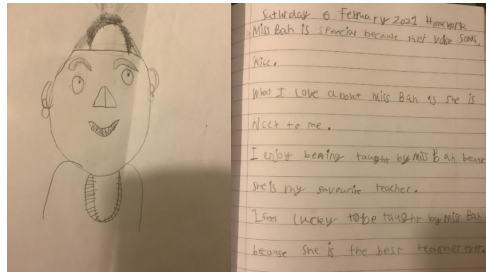 Saturday 6 February 2021 Homework
Miss Bah is special because her voice sounds
nice.
What I Love about Miss Bah is she is
Nice to me.
I enjoy being taught by Miss Bah because
she is my favourite teacher.
I am Lucky to be taught by Miss Bah
because she is the best teacher ever.